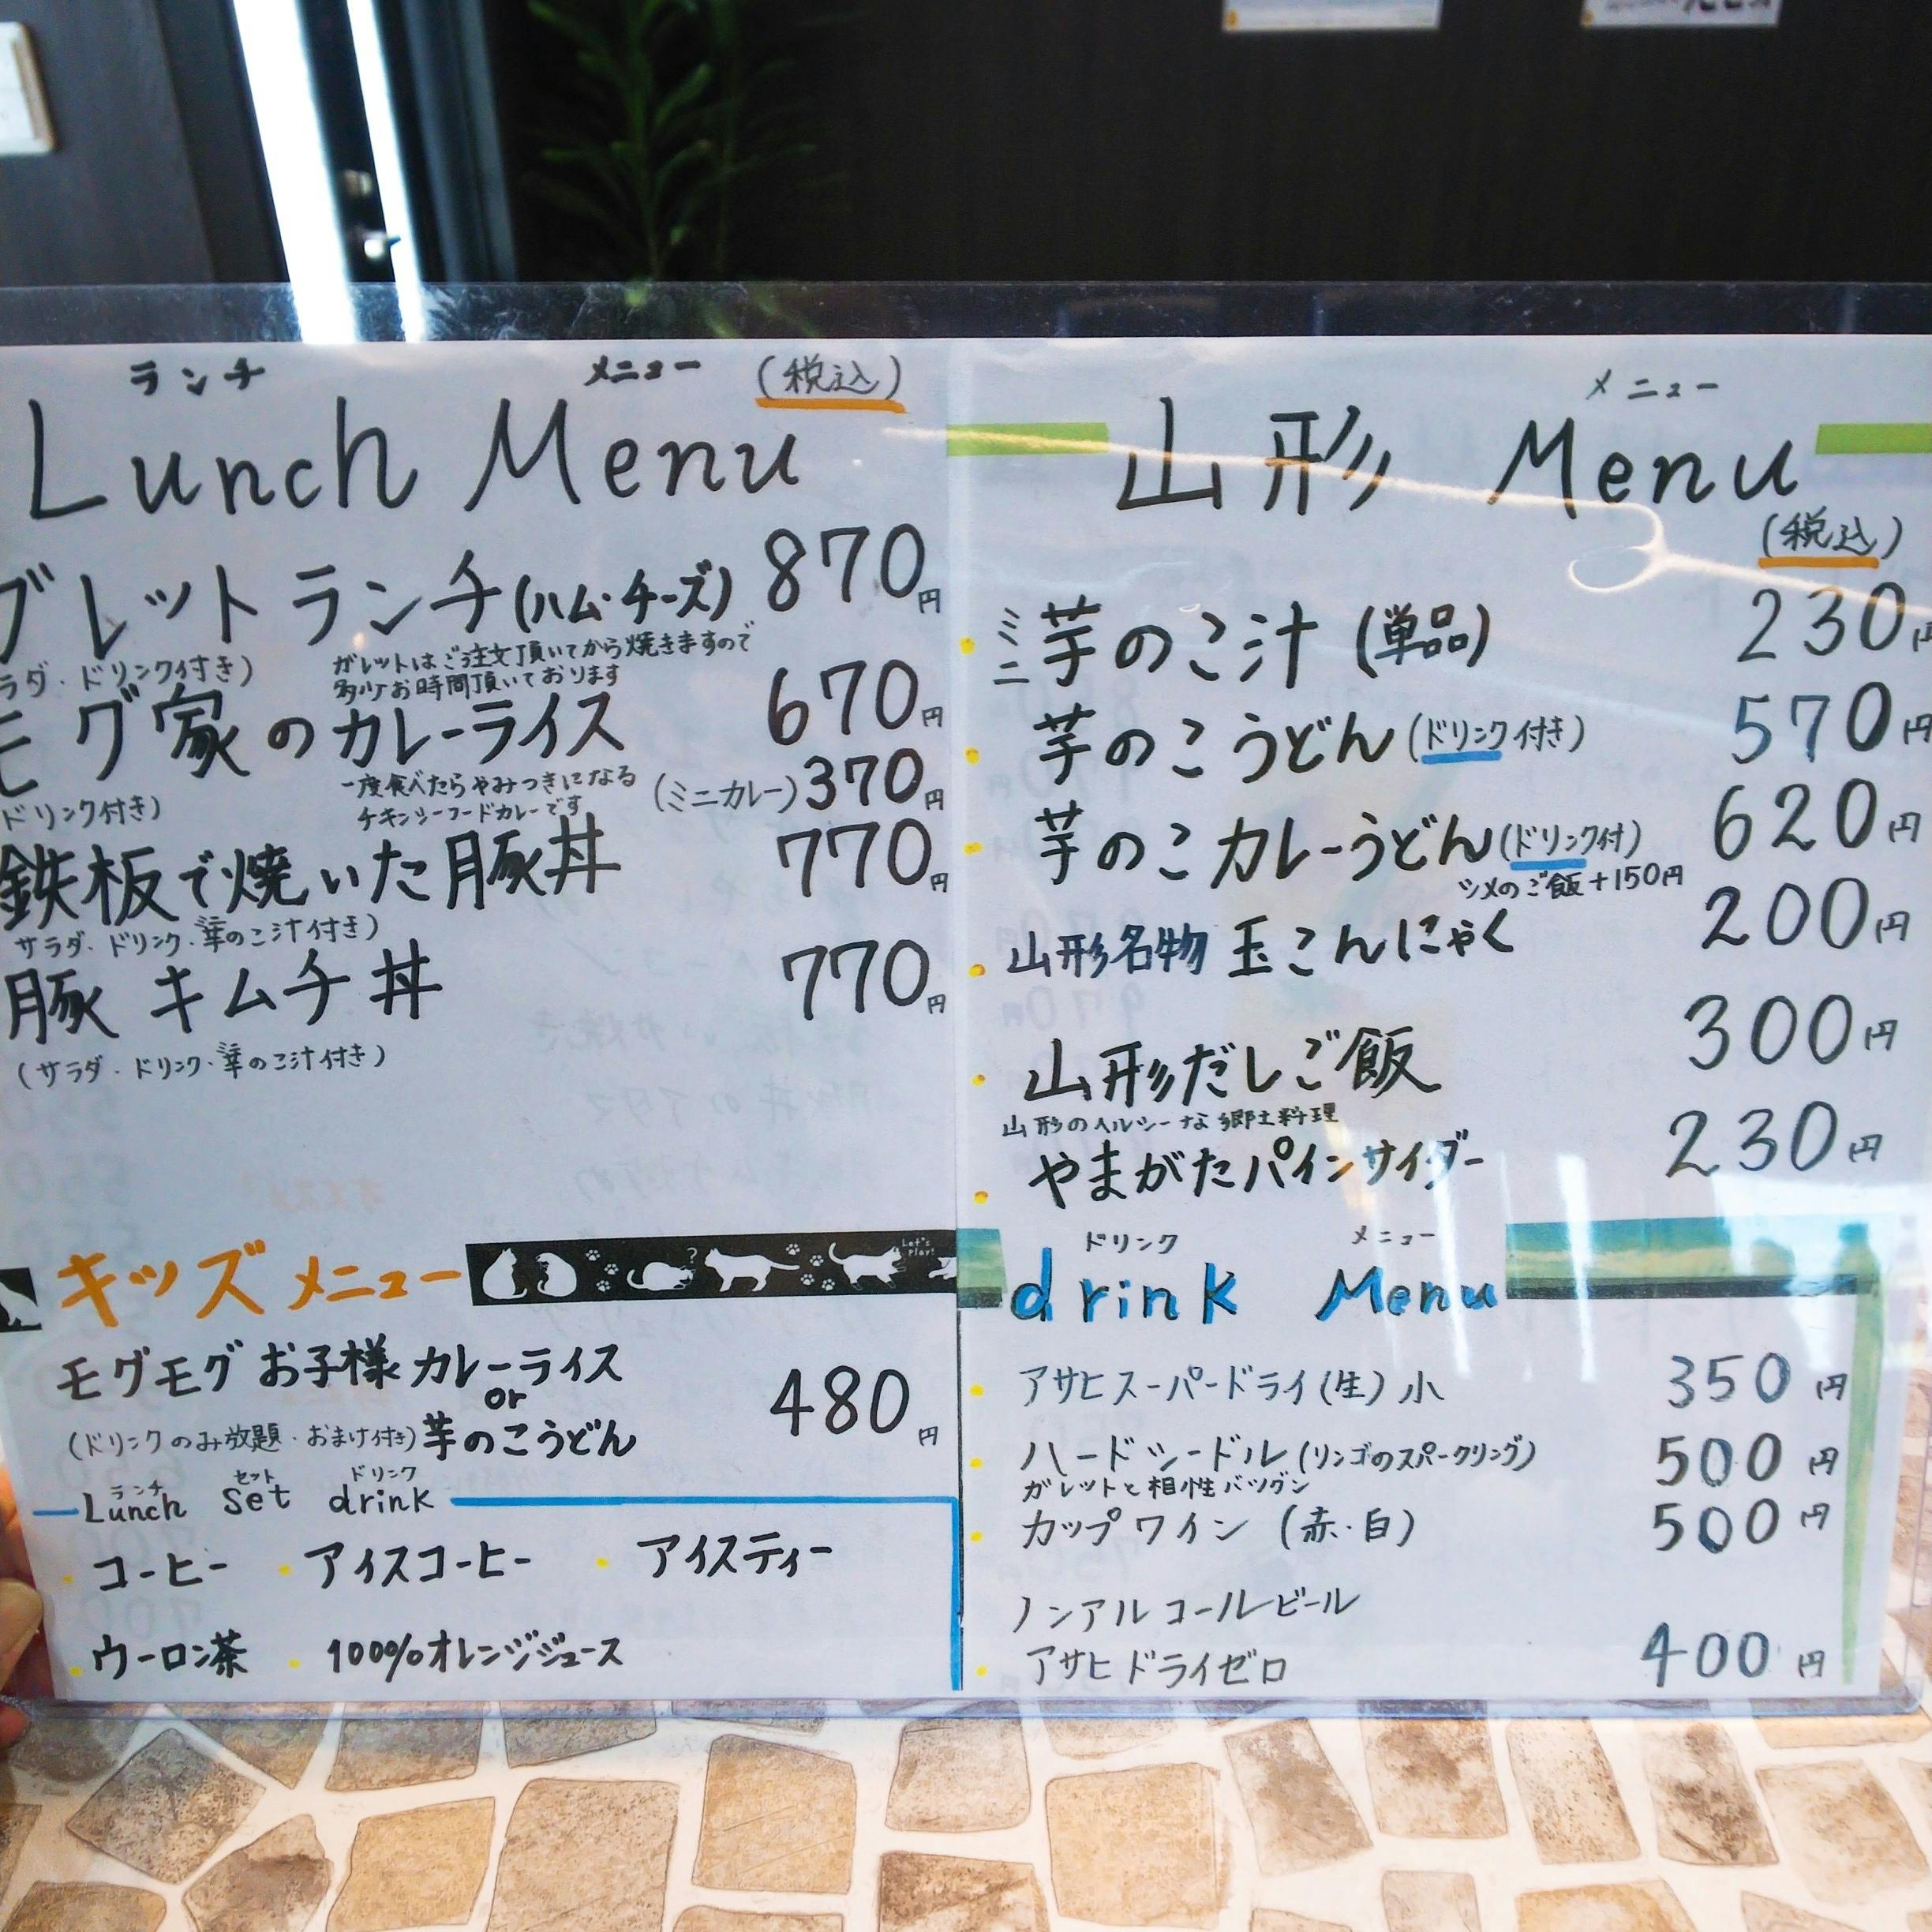 ランチ メニュー (税込)
Lunch Menu
ブレットランチ(ハム・チーズ) 870円
ラダ・ドリンク付き)
ガレットはご注文頂いてから焼きますので
多少お時間頂いております
モグ家のカレーライス 670円
ドリンク付き)
一度食べたらやみつきになる
チキンシーフードカレーです
(ミニカレー)370円
鉄板で焼いた豚丼 770円
サラダ・ドリンク・ミニ芋のこ汁付き)
豚キムチ丼 770円
(サラダ・ドリンク・ミニ芋のこ汁付き)
キッズメニュー
Let's Play!
モグモグお子様カレーライス
or
(ドリンクのみ放題・おまけ付き)芋のこうどん 480円
ランチ セット ドリンク
Lunch Set drink
・コーヒー ・アイスコーヒー ・アイスティー
・ウーロン茶 ・100%オレンジジュース
メニュー
山形 Menu
(税込)
・ミニ芋のこ汁(単品) 230円
・芋のこうどん(ドリンク付き) 570円
・芋のこカレーうどん(ドリンク付) 620円
シメのご飯+150円
・山形名物 玉こんにゃく 200円
・山形だしご飯 300円
山形のヘルシーな郷土料理
・やまがたパインサイダー 230円
ドリンク メニュー
drink Menu
・アサヒスーパードライ(生)小 350円
・ハードシードル(リンゴのスパークリング) 500円
ガレットと相性バツグン
・カップワイン(赤・白) 500円
ノンアルコールビール
・アサヒドライゼロ 400円